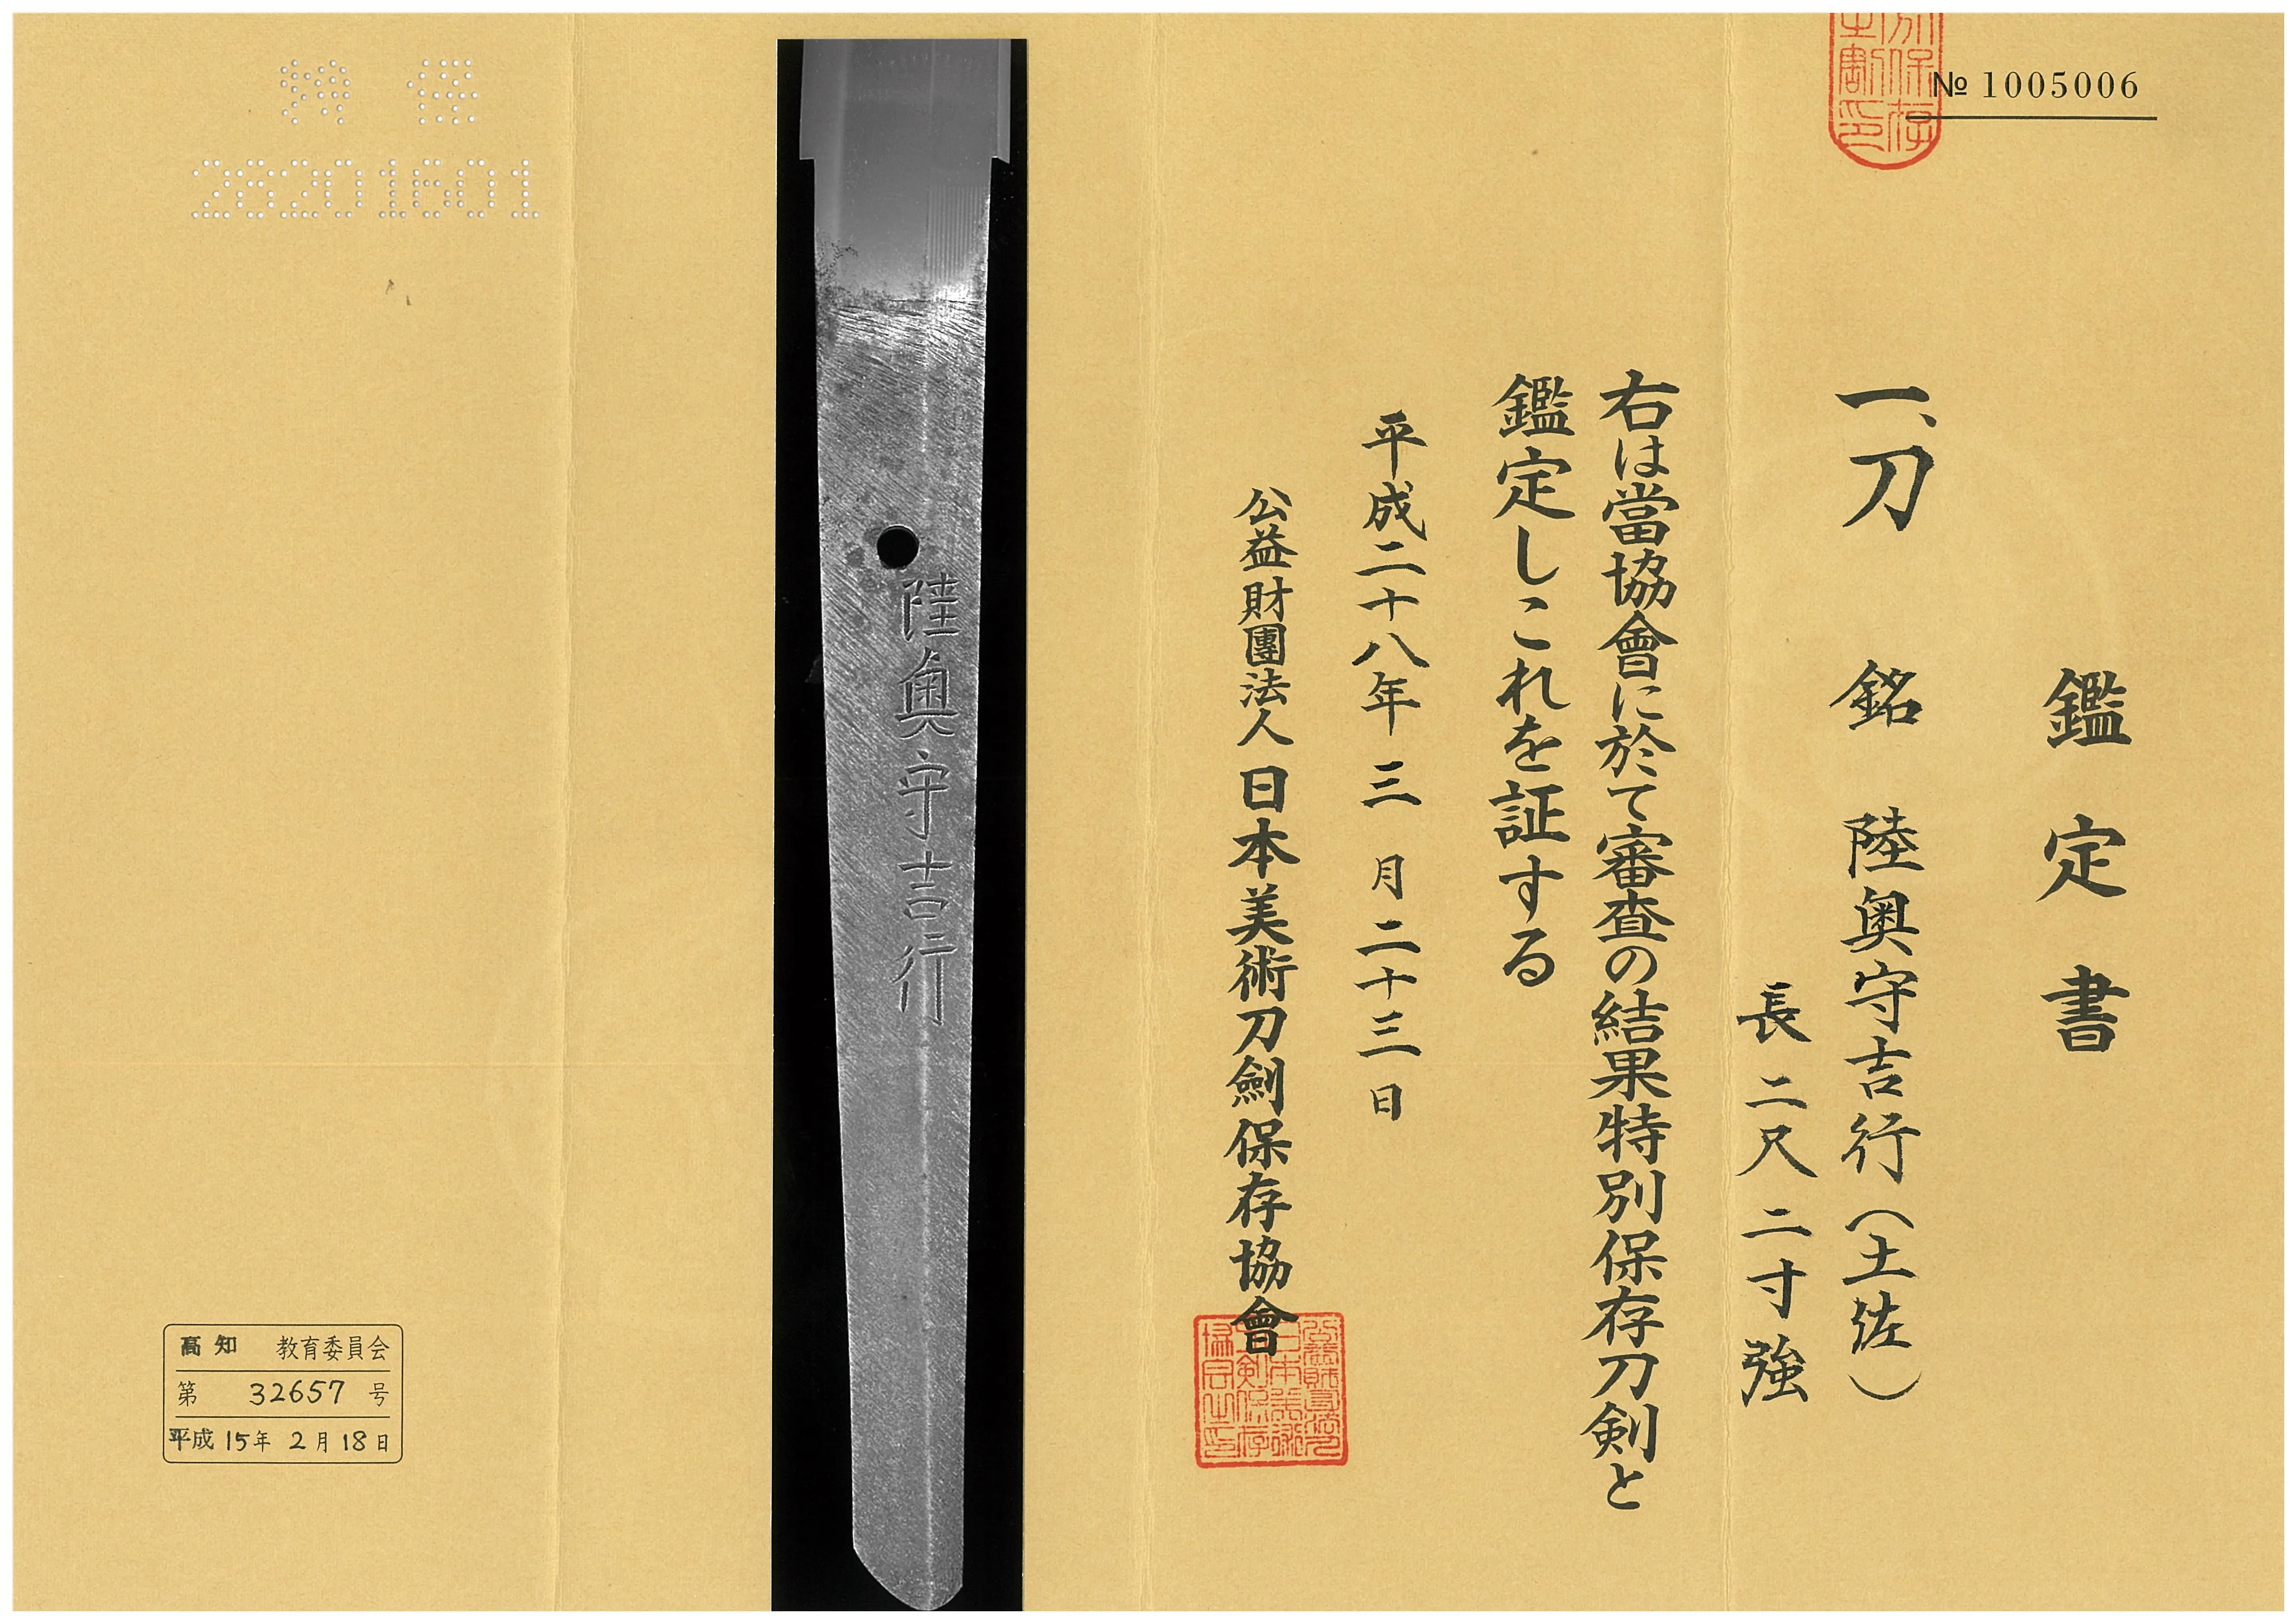 № 1005006
鑑定書
一、刀 銘 陸奥守吉行(土佐)
長二尺二寸強
右は當協會に於て審査の結果特別保存刀剣と
鑑定しこれを証する
平成二十八年三月二十三日
公益財團法人日本美術刀劍保存協會
陸奥守吉行
特保
26201601
高知 教育委員会
第 32657 号
平成15年2月18日